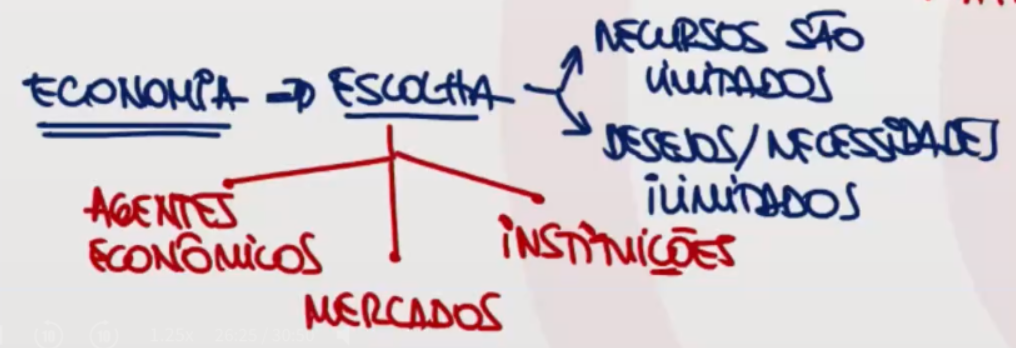 ECONOMIA → ESCOLHA
RECURSOS SÃO
LIMITADOS
DESEJOS/NECESSIDADES
ILIMITADOS
AGENTES
ECONÔMICOS
MERCADOS
INSTITUIÇÕES
1.25x 26:25 / 30:50